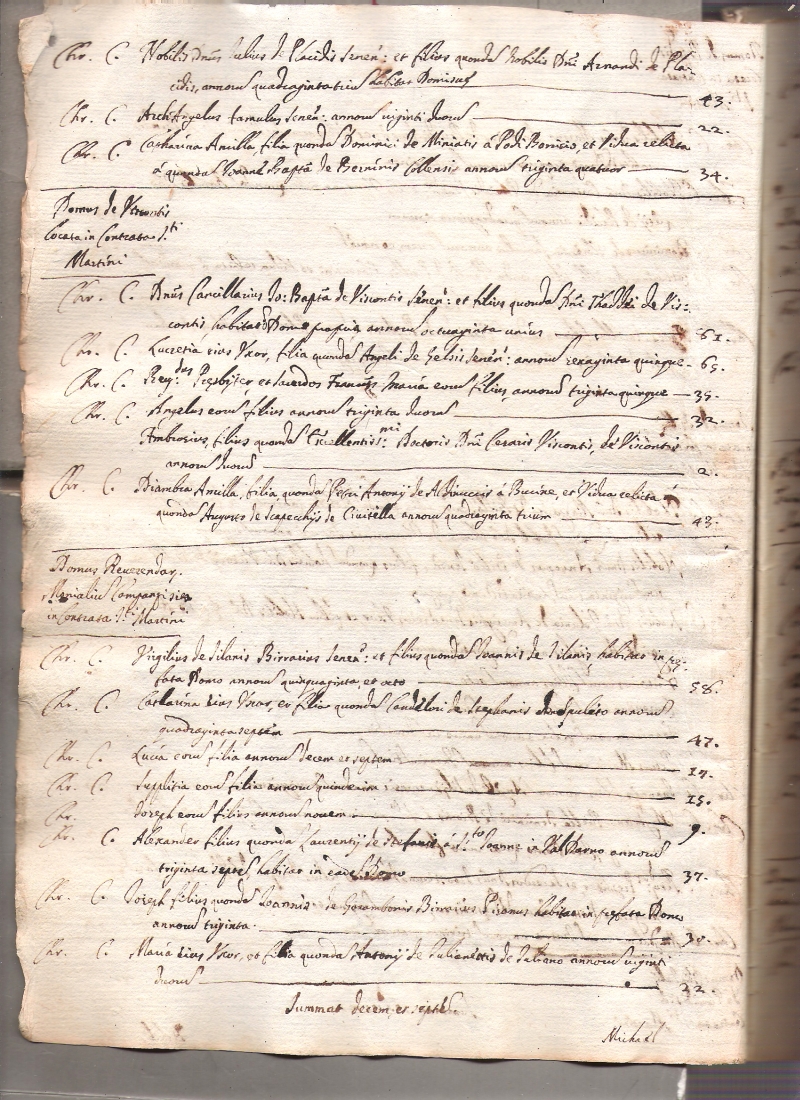 Chr. C. Nobilis Dnus Julius de Placidis Senen: et filius quondā Nobilis Dni Arnandi de Pla-
cidis, annorū quadragintatriū habitat Domi suę 43.
Chr. C. Archangelus famulus Senen: annorū viginti duorū 22.
Chr. C. Catharina Ancilla, filia quondā Dominici de Miniatis à Podi Bonicio, et Vidua relicta
à quondā Joanne Bapta de Berninis Collensis annorū triginta quatuor 34.
Domus de Viscontis
locata in Contrata S.ti
Martini
Chr. C. Dnus Cancellarius Jo: Bapta de Viscontis Senen: et filius quondā Dni Thaddei de Vis:
contis habitat Domo propria annorū octuaginta unius 81.
Chr. C. Lucretia eius Uxor, filia quondā Angeli de Senen: annorū sexaginta quinque 65.
Chr. C. Rev:dus Presbiter et sacerdos Francus Maria eorū filius, annorū triginta quinque 35.
Chr. C. Angelus eorū filius annorū triginta duorū 32.
Ambrosius, filius quondā Excellentiss:mi Doctoris Dni Cesaris Viscontis, de Viscontis
annorū duorū 2.
Chr. C. Diambra Ancilla, filia quondā Petri Antonij de Aldinuccis à Bucine, et Vidua relicta à
quondā Augusto de Scapecchijs de Civitella annorū quadraginta trium 43.
Domus Reverendar.
Monialiū Campansi sita
in Contrata S.ti Martini
Chr. C. Virgilius de Silanis Birrarius Senen: et filius quondā Joannis de Silanis, habitat in pre-
fata Domo annorū quinquaginta, et octo 58.
Chr. C. Catharina eius Uxor, et filia quondā de Stephanis de Spuleto annorū
quadraginta septem 47.
Chr. C. Lucia eorū filia annorū decem et septem 17.
Chr. C. Sulpitia eorū filia annorū quindecim 15.
Chr. Joseph eorū filius annorū novem 9.
Chr. C. Alexander filius quondā Laurentij de Stefanis à S.to Joanne in Val d'arno annorū
triginta septē, habitat in eadē Domo 37.
Chr. C. Joseph filius quondā Joannis de Birrarius Pisanus habitat in prefata Domo
annorū triginta. 30.
Chr. C. Maria eius Uxor, et filia quondā Antonij de Julianettis de Juliano annorū viginti
duorū 22.
Summat decem, et septē
Michael